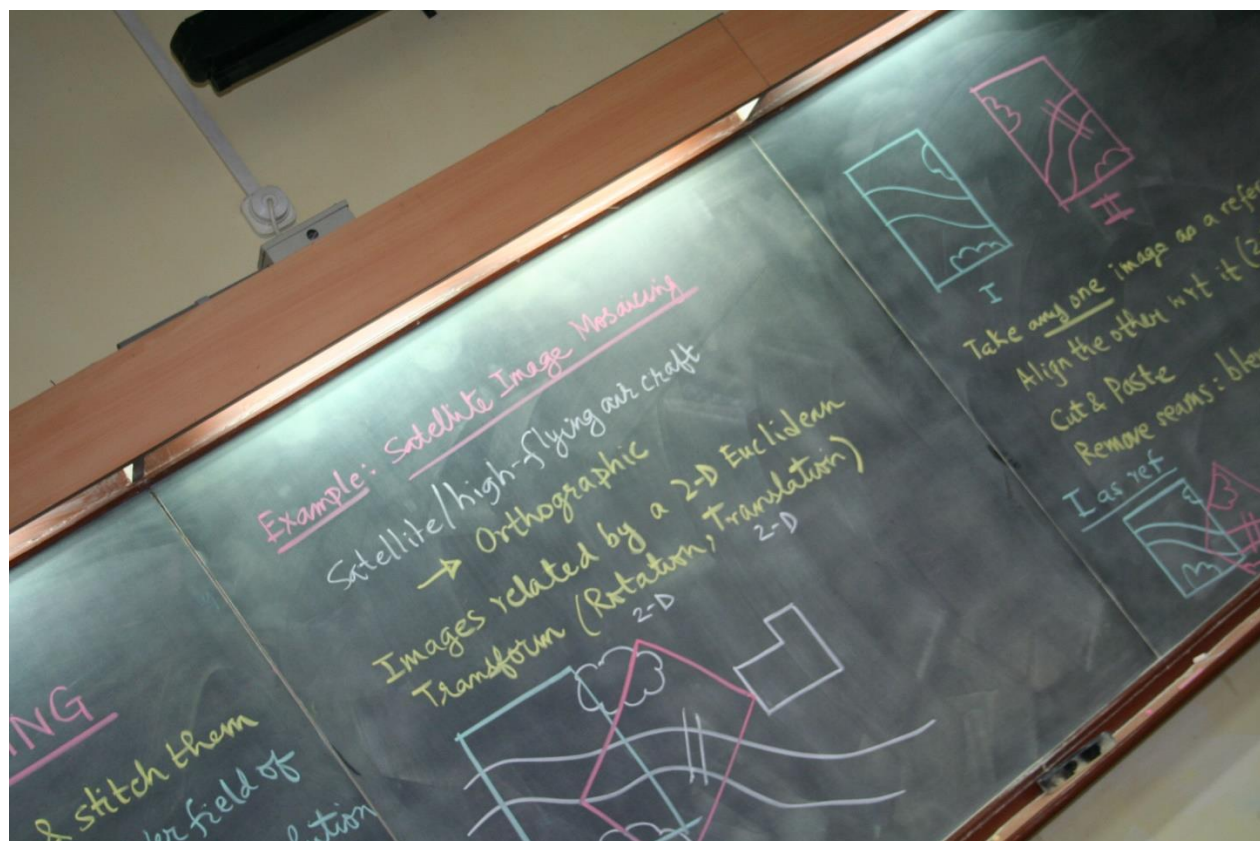 ING
& stitch them
field of
Example: Satellite Image Mosaicing
Satellite/high-flying air craft
→ Orthographic
Images related by a 2-D Euclidean
Transform (Rotation, Translation)
2-D 2-D
I
II
Take any one image as a refer
Align the other wrt it (2
Cut & Paste
Remove seams: ble
I as ref